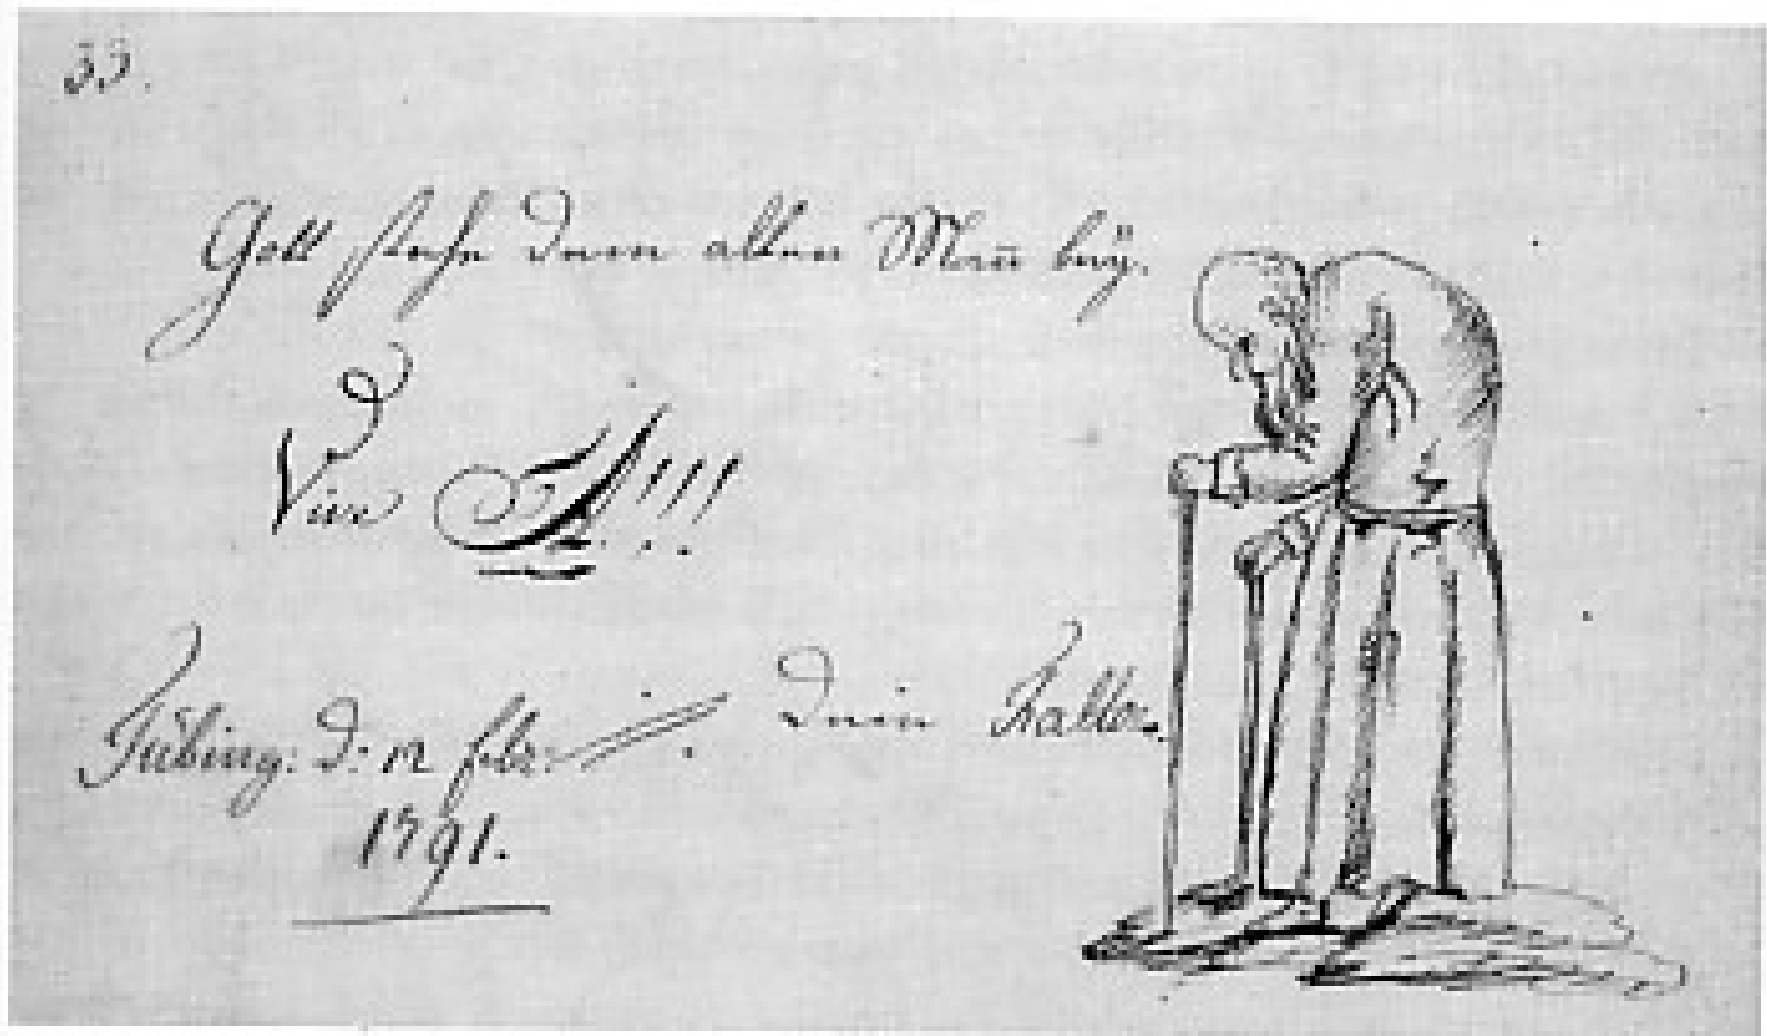 33.
Gott stehe dem alten Mañ bey.
Vive A!!!
Tübing: d. 12 febr: Dein Fallot.
1791.